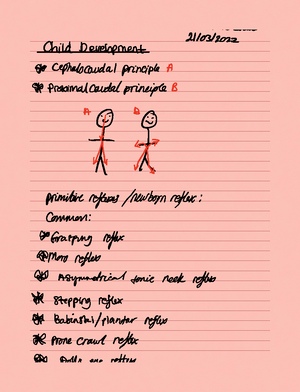 21/03/2022
Child Development
Cephalocaudal principle A
Proximalcaudal principle B
A B
Primitive reflexes / newborn reflex :
Common:
Grasping reflex
Moro reflex
Asymmetrical tonic neck reflex
Stepping reflex
Babinski / plantar reflex
Prone crawl reflex